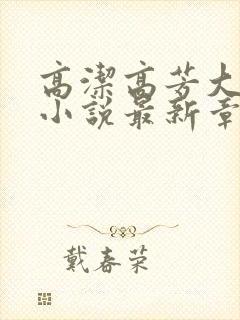 高潔高芳大
小説最新章
戴春荣